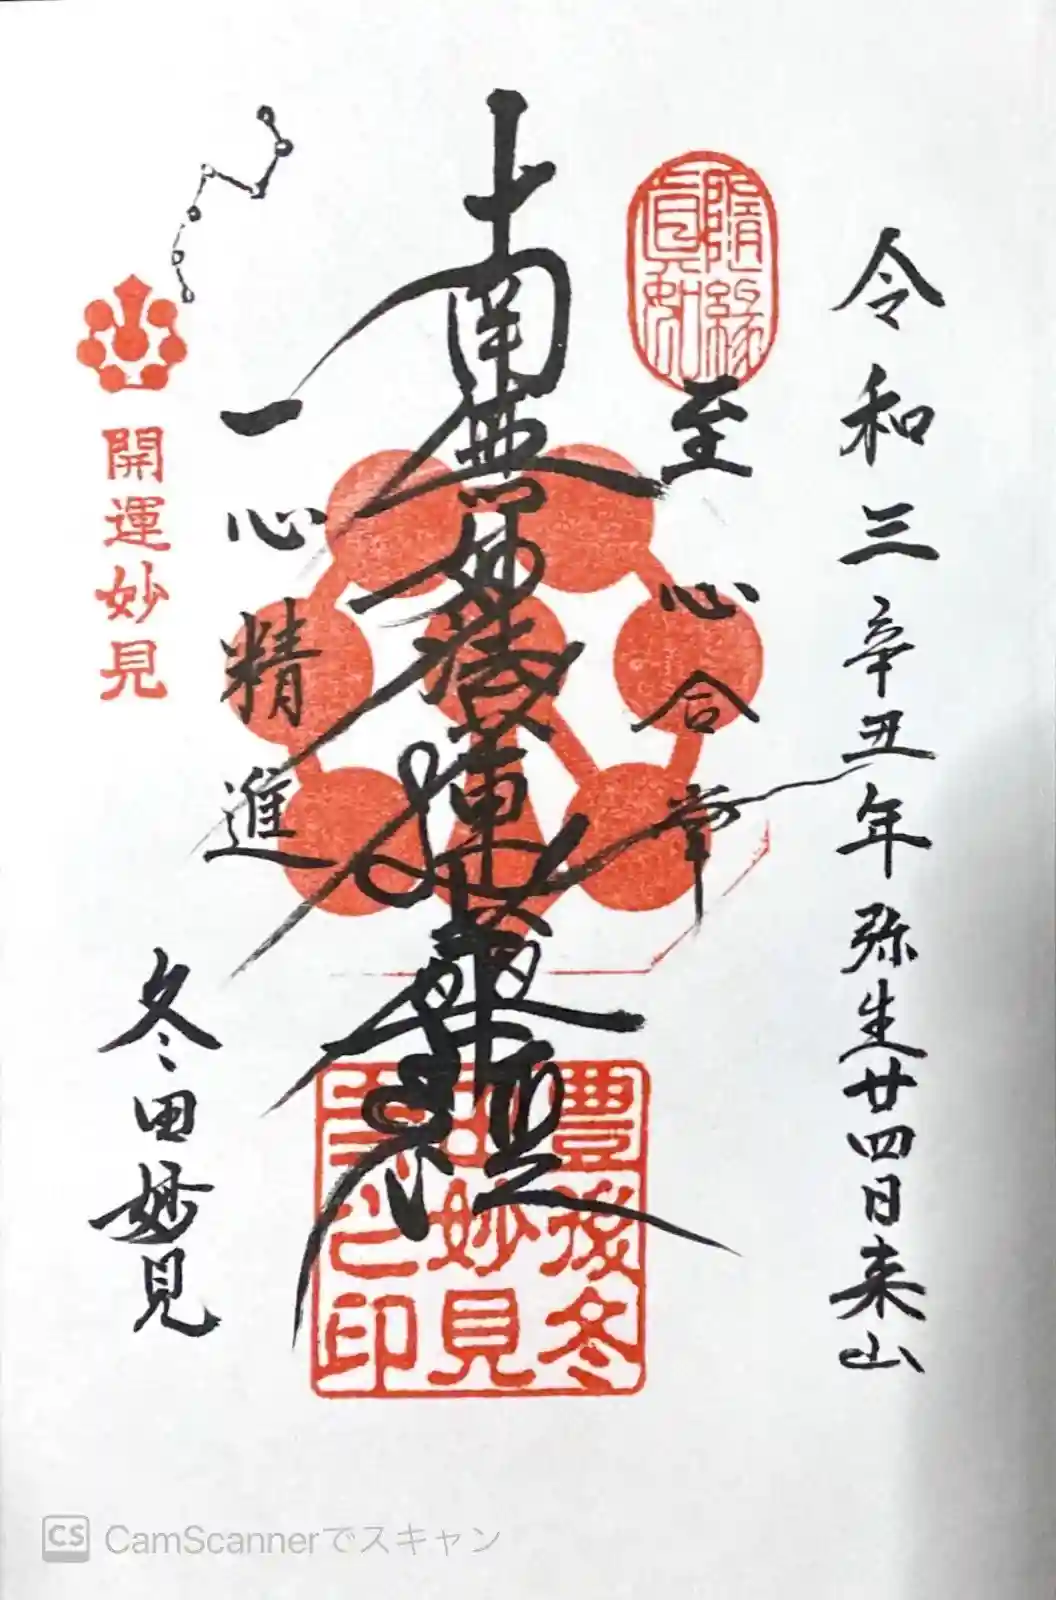 令和三辛丑年弥生廿四日来山
隨縁
真如
至心合掌
南無妙法蓮華經
一心精進
冬田妙見
開運妙見
豊後冬
田妙見
之印
CS CamScannerでスキャン